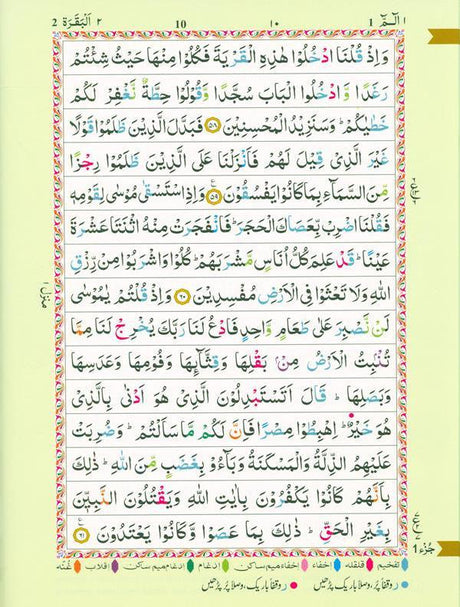 الٓمّٓ ١ 1 ١٠ 10 ٢ اَلْبَقَرَة 2
وَاِذْ قُلْنَا ادْخُلُوْا هٰذِهِ الْقَرْيَةَ فَكُلُوْا مِنْهَا حَيْثُ شِئْتُمْ
رَغَدًا وَّادْخُلُوا الْبَابَ سُجَّدًا وَّقُوْلُوْا حِطَّةٌ نَّغْفِرْ لَكُمْ
خَطٰيٰكُمْ ؕ وَسَنَزِيْدُ الْمُحْسِنِيْنَ ﴿۵۸﴾ فَبَدَّلَ الَّذِيْنَ ظَلَمُوْا قَوْلًا
غَيْرَ الَّذِيْ قِيْلَ لَهُمْ فَاَنْزَلْنَا عَلَى الَّذِيْنَ ظَلَمُوْا رِجْزًا
مِّنَ السَّمَآءِ بِمَا كَانُوْا يَفْسُقُوْنَ ﴿۵۹﴾ وَاِذِ اسْتَسْقٰى مُوْسٰى لِقَوْمِهٖ
فَقُلْنَا اضْرِبْ بِّعَصَاكَ الْحَجَرَ ؕ فَانْفَجَرَتْ مِنْهُ اثْنَتَا عَشْرَةَ
عَيْنًا ؕ قَدْ عَلِمَ كُلُّ اُنَاسٍ مَّشْرَبَهُمْ ؕ كُلُوْا وَاشْرَبُوْا مِنْ رِّزْقِ
اللّٰهِ وَلَا تَعْثَوْا فِي الْاَرْضِ مُفْسِدِيْنَ ﴿۶۰﴾ وَاِذْ قُلْتُمْ يٰمُوْسٰى
لَنْ نَّصْبِرَ عَلٰى طَعَامٍ وَّاحِدٍ فَادْعُ لَنَا رَبَّكَ يُخْرِجْ لَنَا مِمَّا
تُنْۢبِتُ الْاَرْضُ مِنْۢ بَقْلِهَا وَقِثَّآئِهَا وَفُوْمِهَا وَعَدَسِهَا
وَبَصَلِهَا ؕ قَالَ اَتَسْتَبْدِلُوْنَ الَّذِيْ هُوَ اَدْنٰى بِالَّذِيْ
هُوَ خَيْرٌ ؕ اِهْبِطُوْا مِصْرًا فَاِنَّ لَكُمْ مَّا سَاَلْتُمْ ؕ وَضُرِبَتْ
عَلَيْهِمُ الذِّلَّةُ وَالْمَسْكَنَةُ وَبَآءُوْ بِغَضَبٍ مِّنَ اللّٰهِ ؕ ذٰلِكَ
بِاَنَّهُمْ كَانُوْا يَكْفُرُوْنَ بِاٰيٰتِ اللّٰهِ وَيَقْتُلُوْنَ النَّبِيّٖنَ
بِغَيْرِ الْحَقِّ ؕ ذٰلِكَ بِمَا عَصَوْا وَّكَانُوْا يَعْتَدُوْنَ ﴿۶۱﴾
منزل ١
جُزْء 1
تفخيم قلقله اخفاء اخفاء ميم ساكن ادغام ادغام ميم ساكن اقلاب غُنّه
وقفاً باریک، وصلاً پُر پڑھیں وقفاً پُر، وصلاً باریک پڑھیں